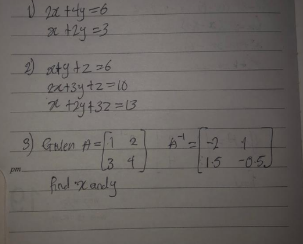 1) 2x+4y=6
x+2y=3
2) x+y+z=6
2x+3y+z=10
x+2y+3z=13
3) Given A=[1 2
3 4] A⁻¹=[-2 1
1.5 -0.5]
find x and y